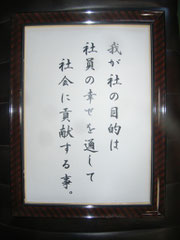 我が社の目的は
社員の幸せを通して
社会に貢献する事。